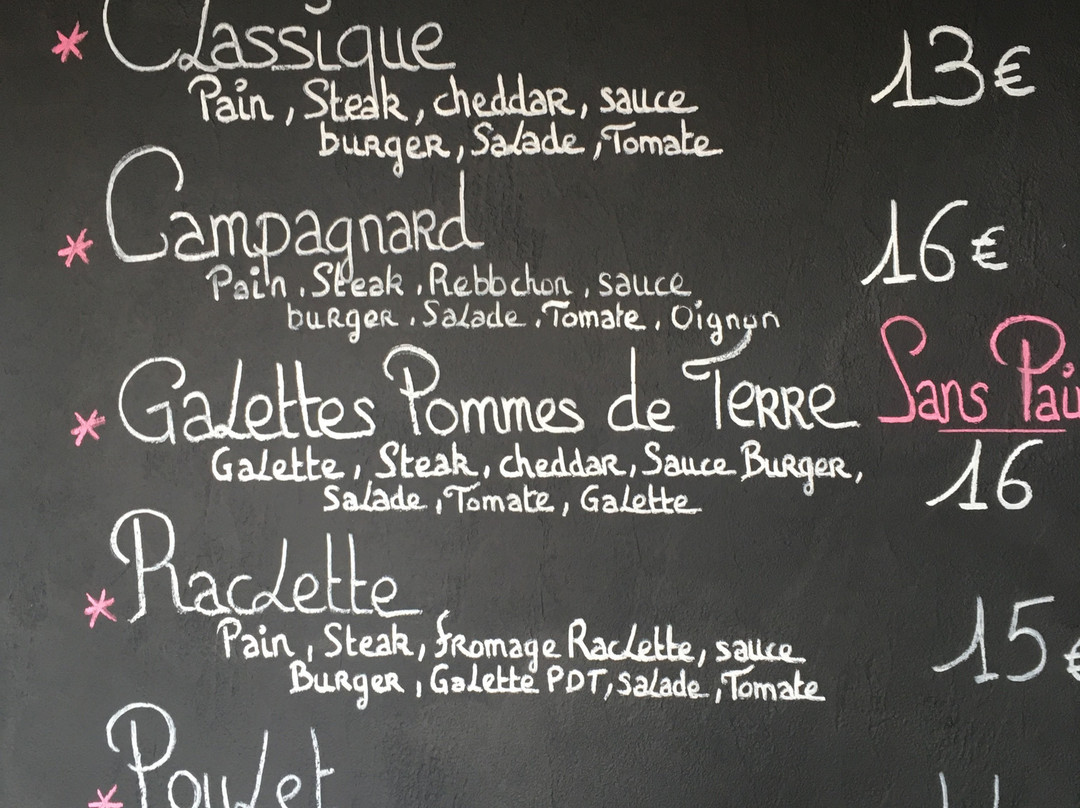 * Classique 13€
Pain, Steak, cheddar, sauce
burger, Salade, Tomate
* Campagnard 16€
Pain, Steak, Rebbchon, sauce
burger, Salade, Tomate, Oignon
* Galettes Pommes de Terre Sans Pain
Galette, Steak, cheddar, Sauce Burger, 16
Salade, Tomate, Galette
* Raclette 15€
Pain, Steak, fromage Raclette, sauce
Burger, Galette PDT, Salade, Tomate
* Poulet